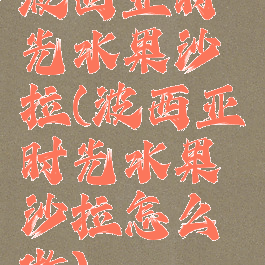 波西亚时
光水果沙
拉(波西亚
时光水果
沙拉怎么